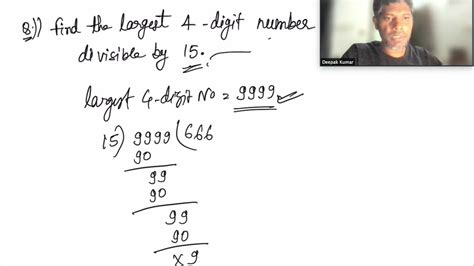 Q:)) find the largest 4-digit number
divisible by 15.
Deepak Kumar
largest 4-digit No = 9999 ✓
15) 9999 (666
90
99
90
99
90
x 9